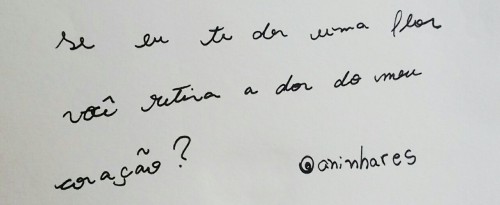 se eu te der uma flor
você retira a dor do meu
coração?
@aninhares